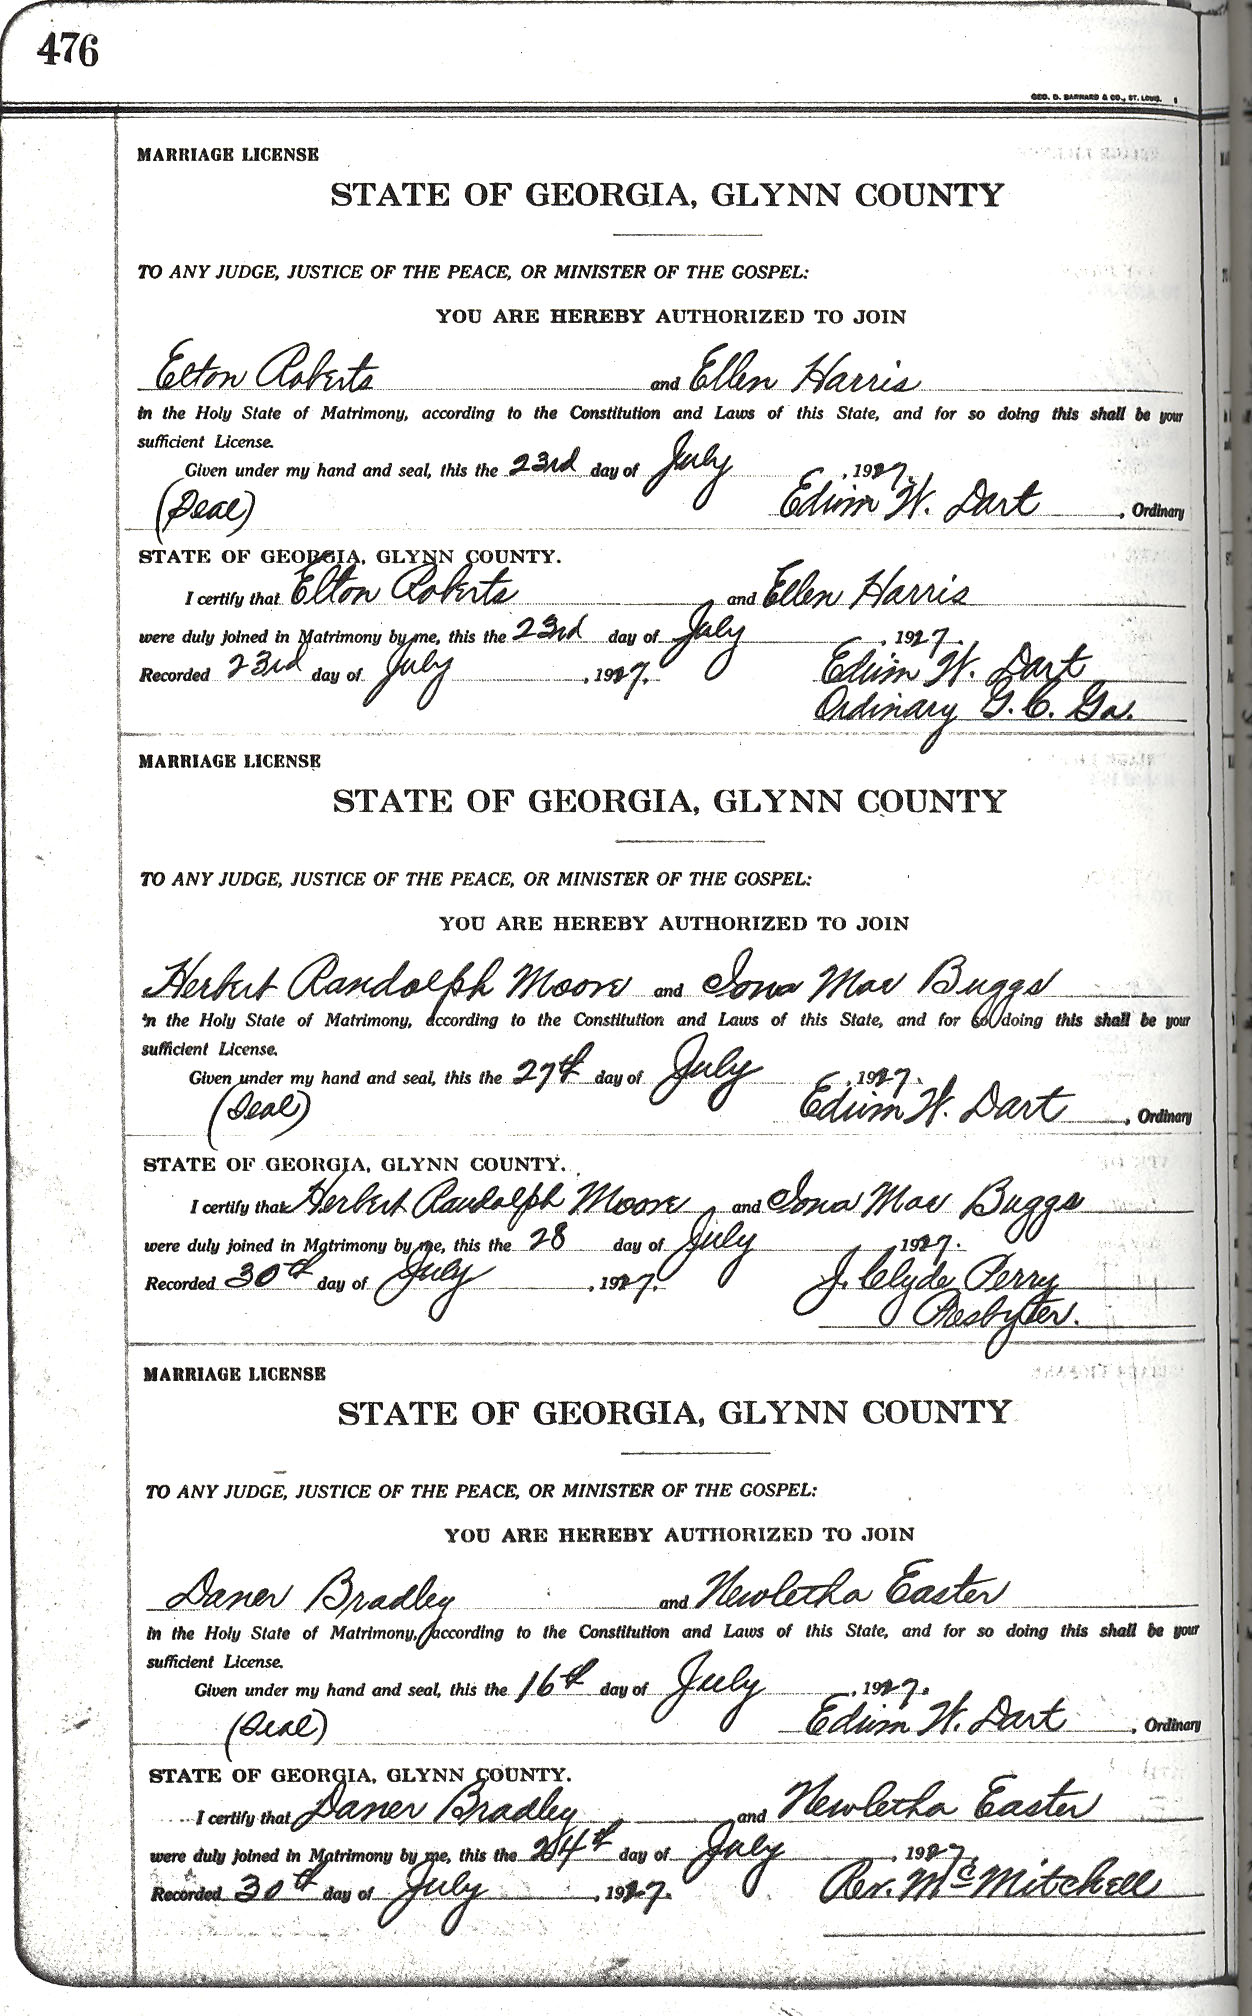 476
GEO. D. BARNARD & CO., ST. LOUIS.
MARRIAGE LICENSE
STATE OF GEORGIA, GLYNN COUNTY
TO ANY JUDGE, JUSTICE OF THE PEACE, OR MINISTER OF THE GOSPEL:
YOU ARE HEREBY AUTHORIZED TO JOIN
Elton Roberts and Ellen Harris
in the Holy State of Matrimony, according to the Constitution and Laws of this State, and for so doing this shall be your
sufficient License.
Given under my hand and seal, this the 23rd day of July, 1927.
(Seal) Edwin W. Dart, Ordinary
STATE OF GEORGIA, GLYNN COUNTY.
I certify that Elton Roberts and Ellen Harris
were duly joined in Matrimony by me, this the 23rd day of July, 1927.
Recorded 23rd day of July, 1927. Edwin W. Dart
Ordinary G. C. Ga.
MARRIAGE LICENSE
STATE OF GEORGIA, GLYNN COUNTY
TO ANY JUDGE, JUSTICE OF THE PEACE, OR MINISTER OF THE GOSPEL:
YOU ARE HEREBY AUTHORIZED TO JOIN
Herbert Randolph Moore and Iona Mae Buggs
in the Holy State of Matrimony, according to the Constitution and Laws of this State, and for so doing this shall be your
sufficient License.
Given under my hand and seal, this the 27th day of July, 1927.
(Seal) Edwin W. Dart, Ordinary
STATE OF GEORGIA, GLYNN COUNTY.
I certify that Herbert Randolph Moore and Iona Mae Buggs
were duly joined in Matrimony by me, this the 28 day of July, 1927.
Recorded 30th day of July, 1927. J. Clyde Perry
Presbyter.
MARRIAGE LICENSE
STATE OF GEORGIA, GLYNN COUNTY
TO ANY JUDGE, JUSTICE OF THE PEACE, OR MINISTER OF THE GOSPEL:
YOU ARE HEREBY AUTHORIZED TO JOIN
Daner Bradley and Newletha Easter
in the Holy State of Matrimony, according to the Constitution and Laws of this State, and for so doing this shall be your
sufficient License.
Given under my hand and seal, this the 16th day of July, 1927.
(Seal) Edwin W. Dart, Ordinary
STATE OF GEORGIA, GLYNN COUNTY.
I certify that Daner Bradley and Newletha Easter
were duly joined in Matrimony by me, this the 24th day of July, 1927.
Recorded 30th day of July, 1927. Rev. McMitchell